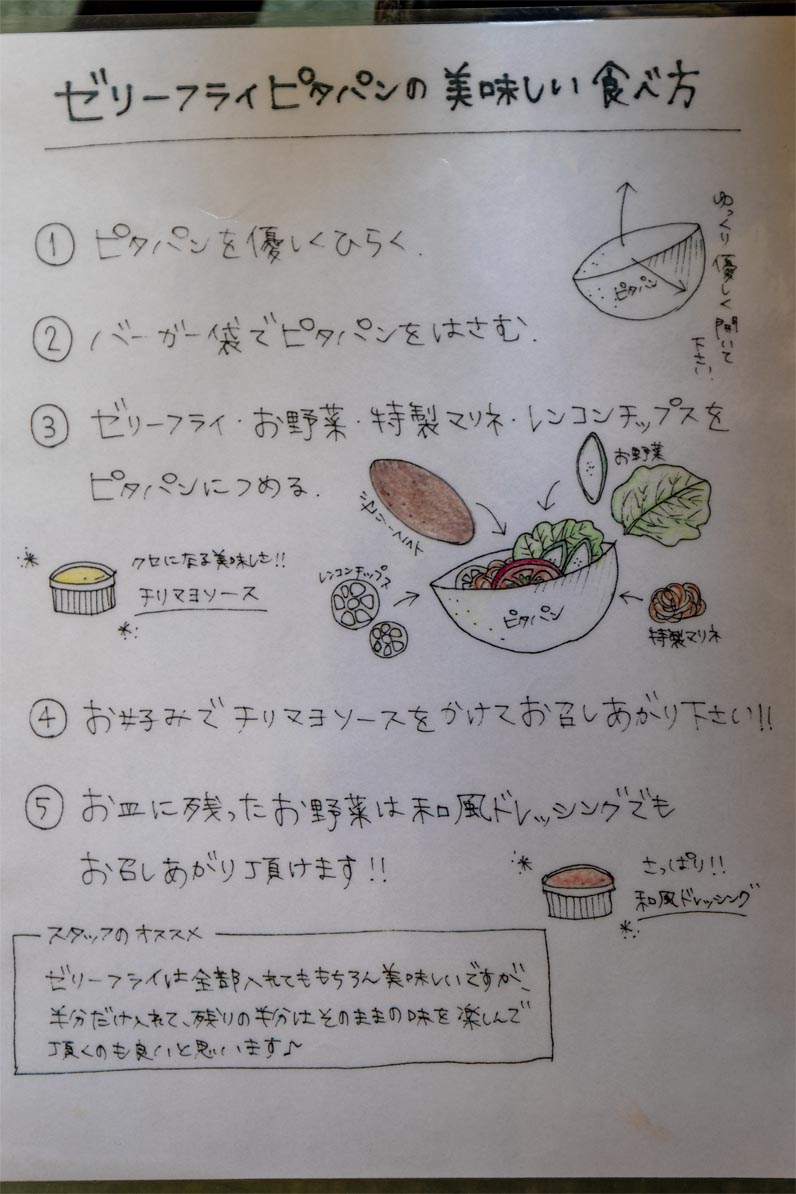 ゼリーフライピタパンの美味しい食べ方
① ピタパンを優しくひらく.
ピタパン
ゆっくり優しく開いて
下さい.
② バーガー袋でピタパンをはさむ.
③ ゼリーフライ・お野菜・特製マリネ・レンコンチップスを
ピタパンにつめる.
お野菜
クセになる美味しさ!!
チリマヨソース
レンコンチップス
ピタパン
特製マリネ
④ お好みでチリマヨソースをかけてお召しあがり下さい!!
⑤ お皿に残ったお野菜は和風ドレッシングでも
お召しあがり頂けます!!
さっぱり!!
和風ドレッシング
スタッフのオススメ
ゼリーフライは全部入れてももちろん美味しいですが、
半分だけ入れて、残りの半分はそのままの味を楽しんで
頂くのも良いと思います♪